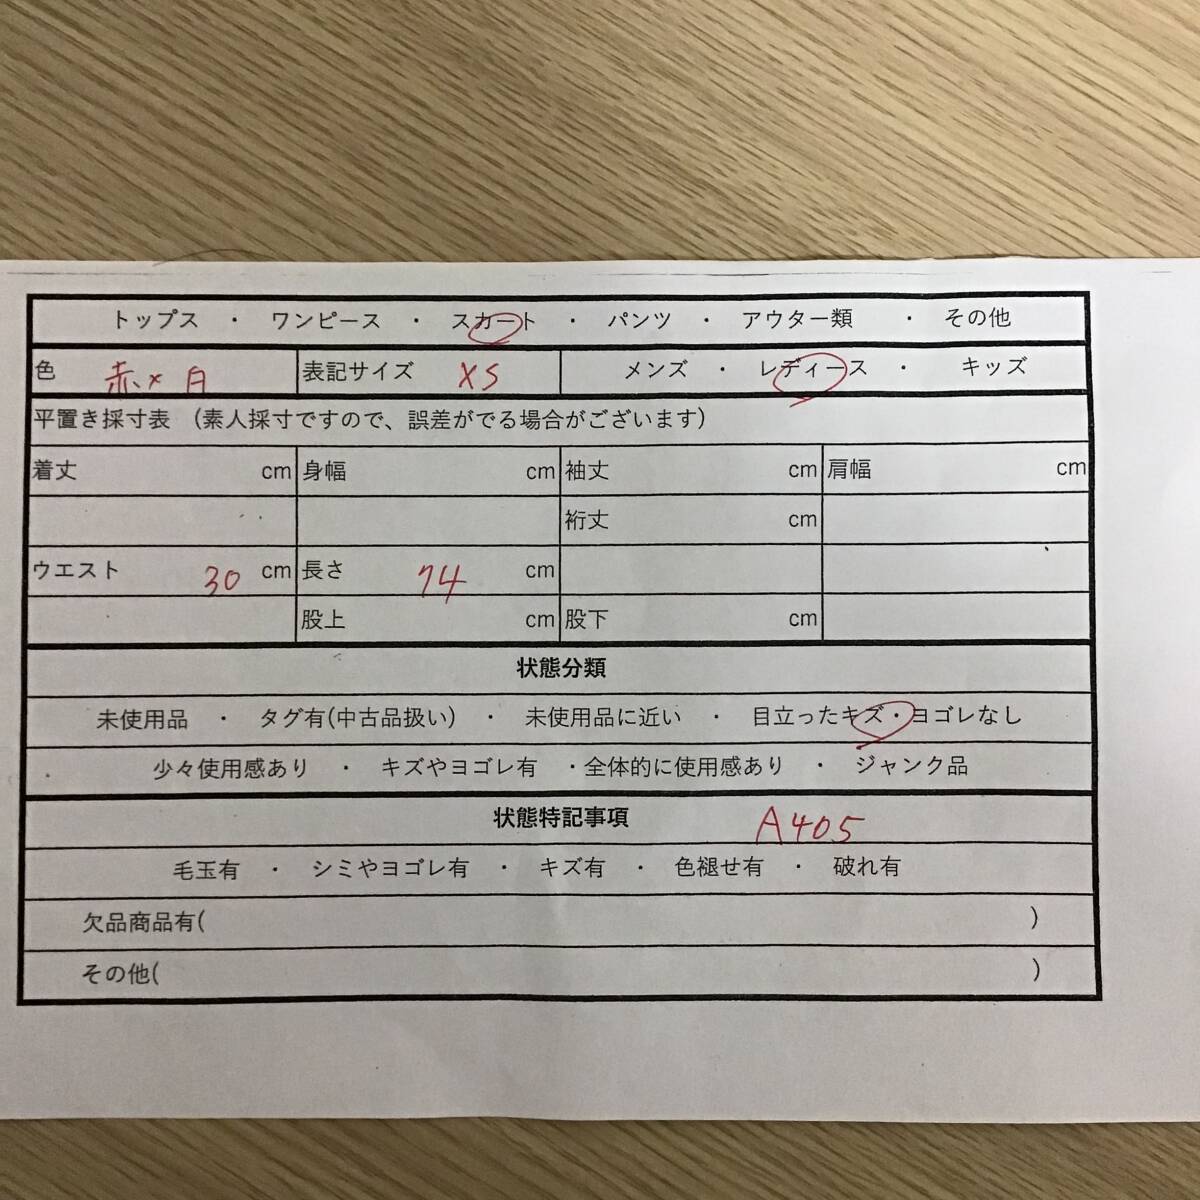 トップス ・ ワンピース ・ スカート ・ パンツ ・ アウター類 ・ その他
色 赤×白 表記サイズ XS メンズ ・ レディース ・ キッズ
平置き採寸表 (素人採寸ですので、誤差がでる場合がございます)
着丈 cm 身幅 cm 袖丈 cm 肩幅 cm
裄丈 cm
ウエスト 30 cm 長さ 74 cm
股上 cm 股下 cm
状態分類
未使用品 ・ タグ有(中古品扱い) ・ 未使用品に近い ・ 目立ったキズ・ヨゴレなし
少々使用感あり ・ キズやヨゴレ有 ・全体的に使用感あり ・ ジャンク品
状態特記事項 A405
毛玉有 ・ シミやヨゴレ有 ・ キズ有 ・ 色褪せ有 ・ 破れ有
欠品商品有( )
その他( )